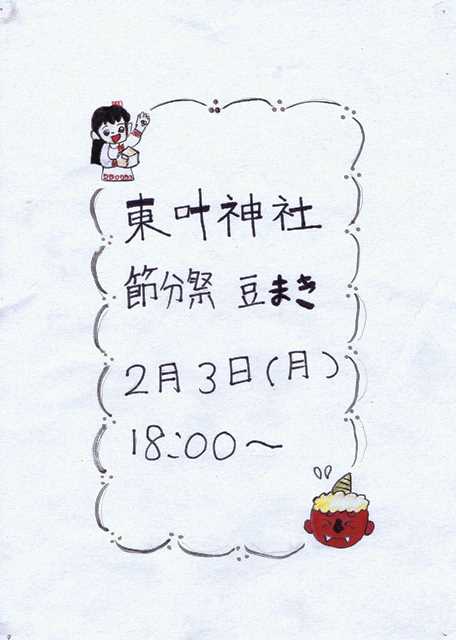 東叶神社
節分祭 豆まき
2月3日(月)
18:00～